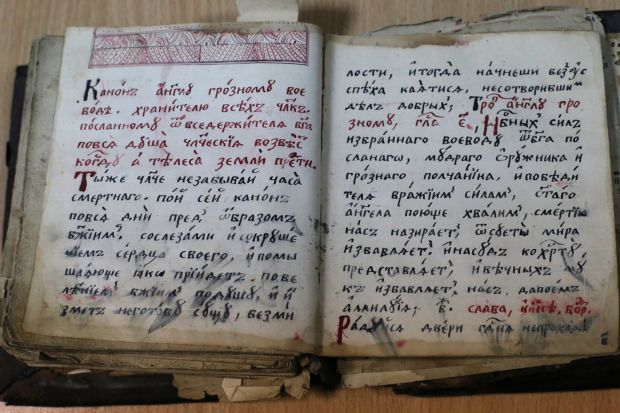 Канонъ а҆нг҃лу грозному вое
водѣ. хранителю всѣхъ чл҃къ.
посланному ѿ вседержителя бг҃а
по вся душа чл҃ческїя
а телеса земли
Ты же члч҃е не забывай часа
смертнаго. пой сей канонъ
по вся дни пред ѡбразомъ
бж҃їим. со слезами и сокруше
нїемъ сердца своего, и помы
шляюще ꙗко прїидетъ. по ве
лѣнїем бж҃їим по душу, и и
зметъ неготову сущу, безми
лости, и тогда начнеши без ус
пѣха каятися, не сотворившим
дѣл добрых; Тро҃ а҆нг҃лу гро
зному, гла҃ є҃. Нб҃ных сил
избраннаго воеводу ѿ бг҃а по
сланаго, мудраго ѻружника и
грознаго полчанина, и побѣди
теля вражїим силам, ст҃аго
ангела поюще хвалим, смертїю
нас назирает; ѿ суеты мира
избавляет; и на суд ко хр҃ту
представляет; и вѣчных му
къ избавляет. нас, да поем
аллилуїя; в҃. слава, и нн҃ѣ.
Радуйся двери